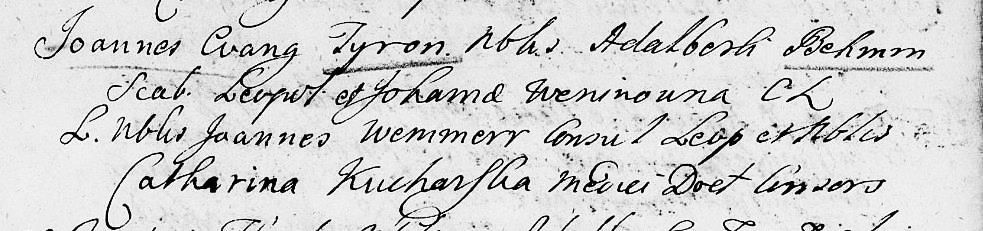 Joannes Evang Tyron. Nblis Adalberti Behmm
Scab. Leopol et Johannæ Weninouna CL
L. Nblis Joannes Wemmerr Consul Leop et Nblis
Catharina Kucharska Medici Doct Consors